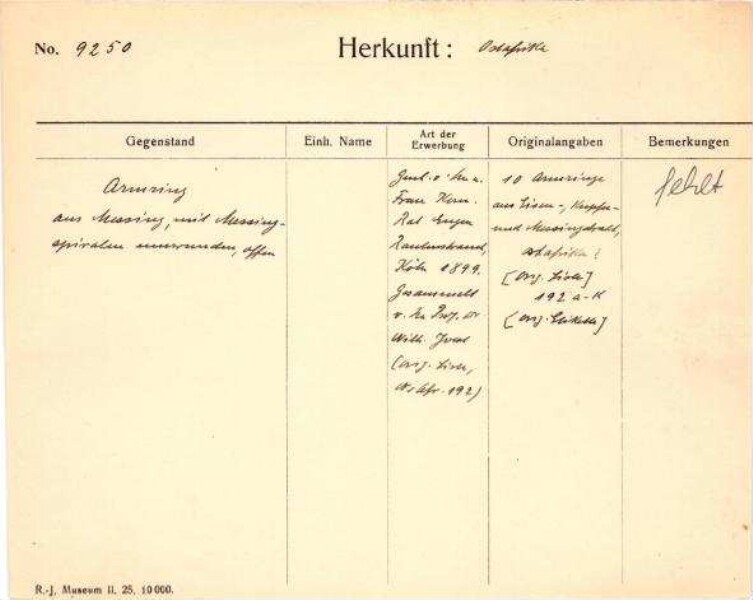 No. 9250
Herkunft: Ostafrika
Gegenstand
Einh. Name
Art der
Erwerbung
Originalangaben
Bemerkungen
Armring
aus Messing, mit Messing-
spiralen umwunden, offen
Frau Kom.
Rat Eugen
Rautenstrauch,
Köln 1899.
Gesammelt
v. Hn Prof. Dr
Wilh. Joest
(orig. Liste,
Afr. 192)
10 Armringe
aus Eisen-, Kupfer-
und Messingdraht,
Ostafrika?
[orig. Liste]
192 a-K
[orig. Etikette]
fehlt
R.-J. Museum II. 25. 10 000.